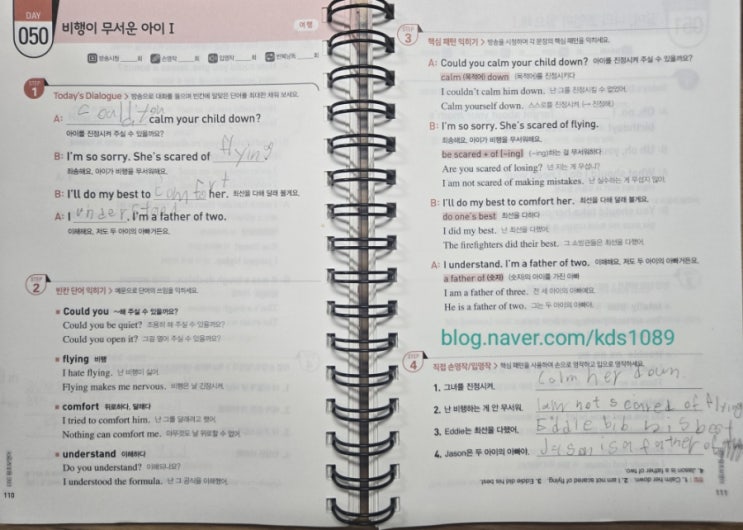 DAY
050
비행이 무서운 아이 I
여행
방송시청 ____회
손영작 ____회
입영작 ____회
반복낭독 ____회
STEP
1
Today's Dialogue > 방송으로 대화를 들으며 빈칸에 알맞은 단어를 최대한 채워 보세요.
A: Could you calm your child down?
아이를 진정시켜 주실 수 있을까요?
B: I'm so sorry. She's scared of flying
죄송해요. 아이가 비행을 무서워해요.
B: I'll do my best to comfort her. 최선을 다해 달래 볼게요.
A: I understand. I'm a father of two.
이해해요. 저도 두 아이의 아빠거든요.
STEP
2
빈칸 단어 익히기 > 예문으로 단어의 쓰임을 익히세요.
Could you ~해 주실 수 있을까요?
Could you be quiet? 조용히 해 주실 수 있을까요?
Could you open it? 그걸 열어 주실 수 있을까요?
flying 비행
I hate flying. 난 비행이 싫어.
Flying makes me nervous. 비행은 날 긴장시켜.
comfort 위로하다, 달래다
I tried to comfort him. 난 그를 달래려고 했어.
Nothing can comfort me. 아무것도 날 위로할 수 없어.
understand 이해하다
Do you understand? 이해되나요?
I understood the formula. 난 그 공식을 이해했어.
110
STEP
3
핵심 패턴 익히기 > 방송을 시청하며 각 문장의 핵심 패턴을 익히세요.
A: Could you calm your child down? 아이를 진정시켜 주실 수 있을까요?
calm (목적어) down (목적어)를 진정시키다
I couldn't calm him down. 난 그를 진정시킬 수 없었어.
Calm yourself down. 스스로를 진정시켜. (→ 진정해.)
B: I'm so sorry. She's scared of flying.
죄송해요. 아이가 비행을 무서워해요.
be scared + of [~ing] (~ing)하는 걸 무서워하다
Are you scared of losing? 넌 지는 게 무섭니?
I am not scared of making mistakes. 난 실수하는 게 무섭지 않아.
B: I'll do my best to comfort her. 최선을 다해 달래 볼게요.
do one's best 최선을 다하다
I did my best. 난 최선을 다했어.
The firefighters did their best. 그 소방관들은 최선을 다했어.
A: I understand. I'm a father of two. 이해해요. 저도 두 아이의 아빠거든요.
a father of (숫자) (숫자)의 아이를 가진 아빠
I am a father of three. 전 세 아이의 아빠예요.
He is a father of two. 그는 두 아이의 아빠야.
blog.naver.com/kds1089
STEP
4
직접 손영작/입영작 > 핵심 패턴을 사용하여 손으로 영작하고 입으로 영작하세요.
1. 그녀를 진정시켜. Calm her down.
2. 난 비행하는 게 안 무서워. I am not scared of flying
3. Eddie는 최선을 다했어. Eddie bib his best
4. Jason은 두 아이의 아빠야. Jason is a father of
1. Calm her down. 2. I am not scared of flying. 3. Eddie did his best.
4. Jason is a father of two.
111